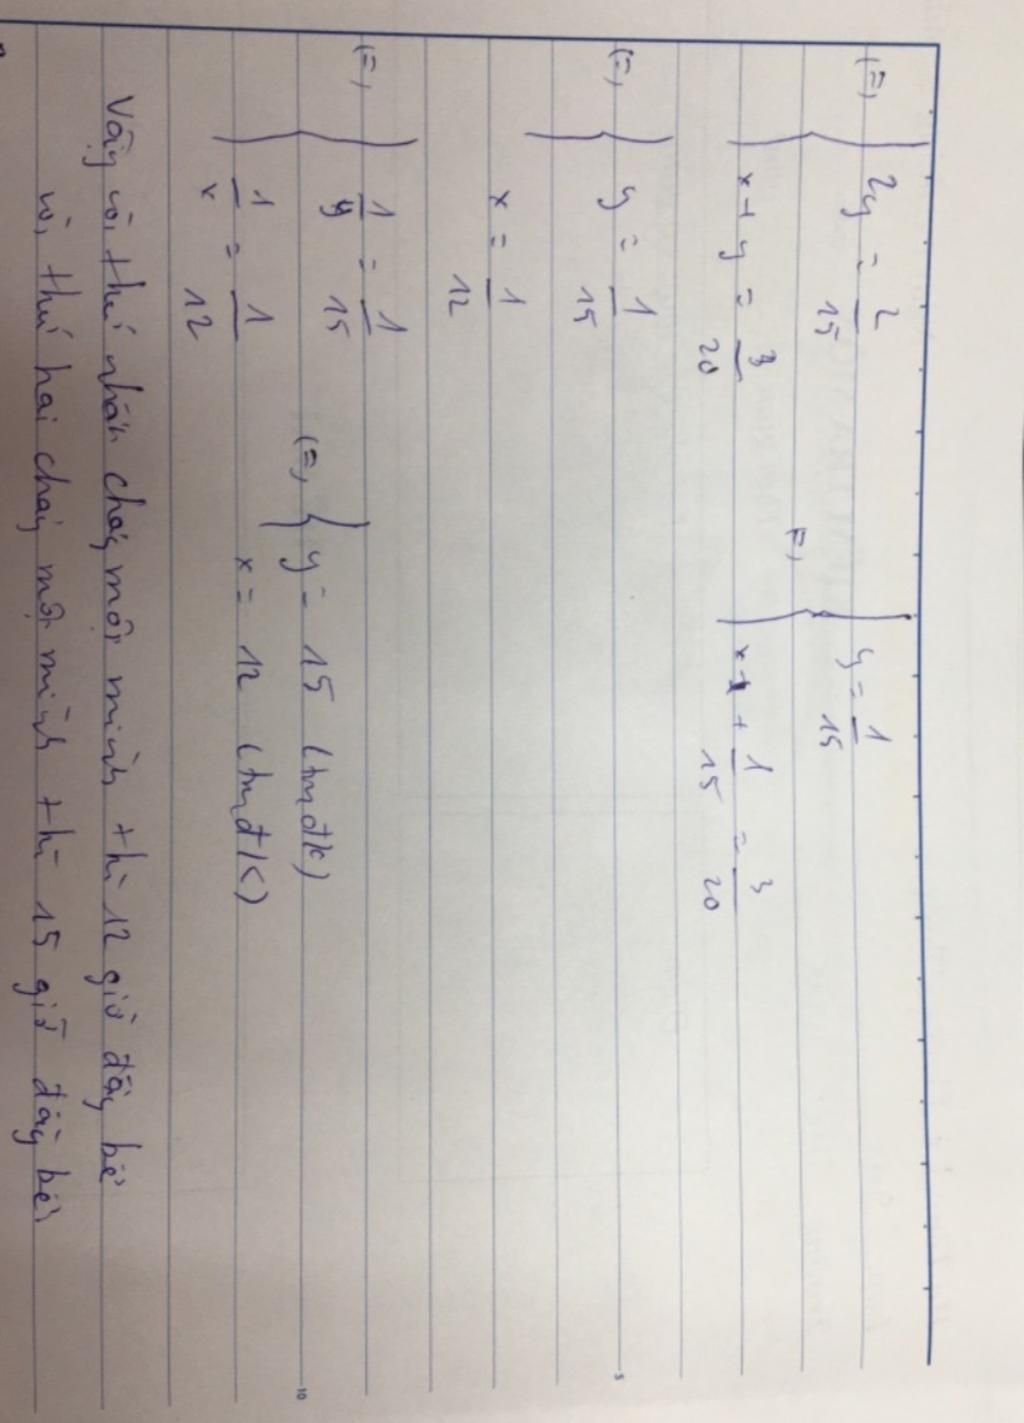 (=) { 2y = 2/15 (=) { y = 1/15
x + y = 3/20 x + 1/15 = 3/20
(=) { y = 1/15
x = 1/12
(=) { 1/y = 1/15 (=) { y = 15 (tmđk)
1/x = 1/12 x = 12 (tmđk)
Vậy vòi thứ nhất chảy một mình thì 12 giờ đầy bể
vòi thứ hai chảy một mình thì 15 giờ đầy bể
5
10